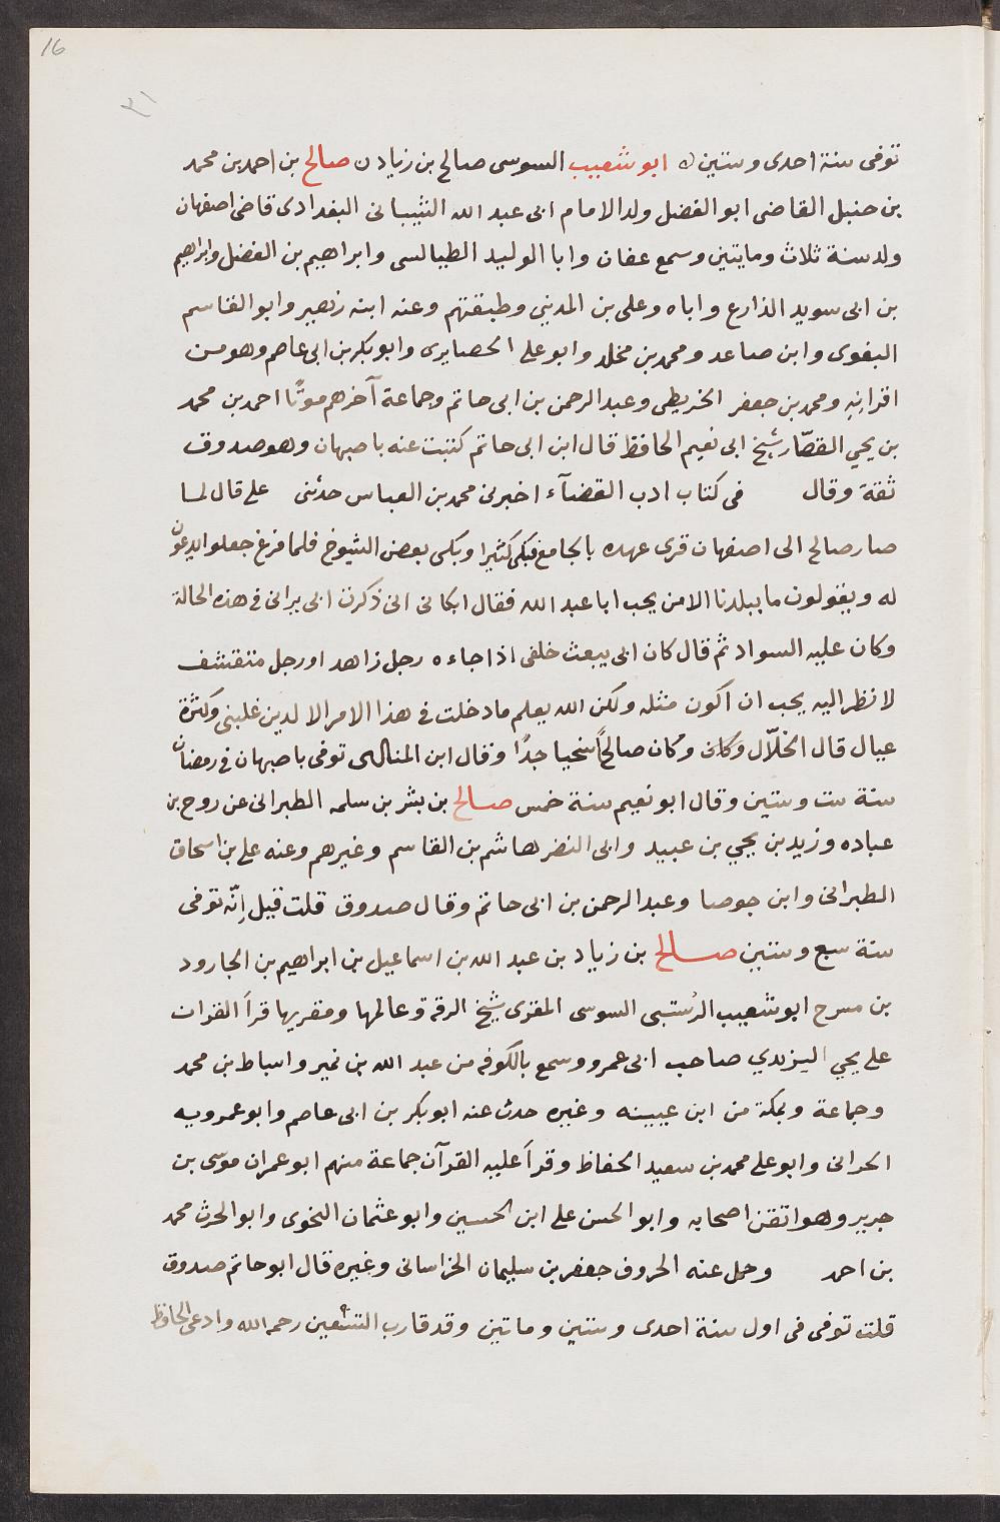 16
٢١
توفى سنة احدى وستين ابو شعيب السوسى صالح بن زياد ن صالح بن احمد بن محمد
بن حنبل القاضى ابو الفضل ولد الامام ابى عبد الله الشيبانى البغدادى قاضى اصفهان
ولد سنة ثلاث ومايتين وسمع عفان وابا الوليد الطيالسى وابراهيم بن الفضل وابراهيم
بن ابى سويد الذارع واباه وعلى بن المدينى وطبقتهم وعنه ابنه زهير وابو القاسم
البغوى وابن صاعد ومحمد بن مخلد وابو على الحصايرى وابو بكر بن ابى عاصم وهو من
اقرانه ومحمد بن جعفر الخريطى وعبد الرحمن بن ابى حاتم وجماعة آخرهم موتًا احمد بن محمد
بن يحيى القصّار شيخ ابى نعيم الحافظ قال ابن ابى حاتم كتبت عنه باصبهان وهو صدوق
ثقة وقال فى كتاب ادب القضآء اخبرنى محمد بن العباس حدثنى على قال لما
صار صالح الى اصفهان قرى عهده بالجامع فبكى كثيرا وبكى بعض الشيوخ فلما فرغ جعلوا يدعون
له ويقولون ما ببلدنا الا من يحب ابا عبد الله فقال ابكانى انى ذكرت ابى يرانى فى هذه الحالة
وكان عليه السواد ثم قال كان ابى يبعث خلفى اذا جاءه رجل زاهد او رجل متقشف
لانظر اليه يحب ان اكون مثله ولكن الله يعلم ما دخلت فى هذا الامر الا لدين غلبنى وكثرة
عيال قال الخلّال وكان وكان صالحًا سخيا جدًا وقال ابن المنالهى توفى باصبهان فى رمضان
سنة ست وستين وقال ابو نعيم سنة خمس صالح بن بشر بن سلمه الطبرانى عن روح بن
عباده وزيد بن يحيى بن عبيد وابى النضر هاشم بن القاسم وغيرهم وعنه على بن اسحاق
الطبرانى وابن جوصا وعبد الرحمن بن ابى حاتم وقال صدوق قلت قيل إنّه توفى
سنة سبع وستين صالح بن زياد بن عبد الله بن اسماعيل بن ابراهيم بن الجارود
بن مسرح ابو شعيب الرُستبى السوسى المقرى شيخ الرقة وعالمها ومقريها قرأ القران
على يحيى اليزيدي صاحب ابى عمرو وسمع بالكوفه من عبد الله بن نمير واسباط بن محمد
وجماعة وبمكة من ابن عيينه وغيره حدث عنه ابو بكر بن ابى عاصم وابو عمرويه
الحرانى وابو على محمد بن سعيد الحفاظ وقرأ عليه القرآن جماعة منهم ابو عمران موسى بن
جرير وهو اتقن اصحابه وابو الحسن على ابن الحسين وابو عثمان النحوى وابو الحرث محمد
بن احمد وحمل عنه الحروف جعفر بن سليمان الخراسانى وغيره قال ابو حاتم صدوق
قلت توفى فى اول سنة احدى وستين وماتين وقد قارب التسعين رحمه الله وادعى الحافظ